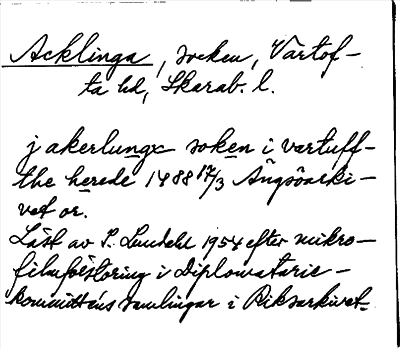 Acklinga, socken, Vartof-
ta hd, Skarab. l.
j akerlungx soken i vartuff-
the herede 1488 17/3 Ängsöarki-
vet or.
Läst av S. Lundahl 1954 efter mikro-
filmförstoring i Diplomatarie-
kommitténs samlingar i Riksarkivet.